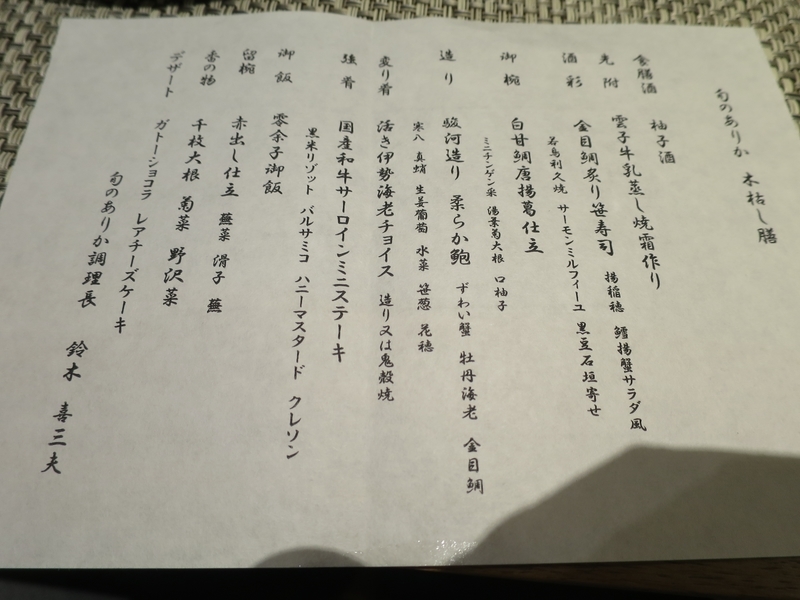 旬のありか 木枯し膳
食膳酒 柚子酒
先附 雲子牛乳蒸し焼霜作り
酒彩 金目鯛炙り笹寿司 揚稲穂 鱈揚蟹サラダ風
若鳥利久焼 サーモンミルフィーユ 黒豆石垣寄せ
御椀 白甘鯛唐揚葛仕立
ミニチンゲン菜 湯葉菊大根 口柚子
造り 駿河造り 柔らか鮑 ずわい蟹 牡丹海老 金目鯛
寒八 真蛸 生姜葡萄 水菜 笹葱 花穂
変り肴 活き伊勢海老チョイス 造り又は鬼殻焼
強肴 国産和牛サーロインミニステーキ
黒米リゾット バルサミコ ハニーマスタード クレソン
御飯 零余子御飯
留椀 赤出し仕立 蕪菜 滑子 蕪
香の物 千枚大根 菊菜 野沢菜
デザート ガトーショコラ レアチーズケーキ
旬のありか調理長 鈴木 喜三夫